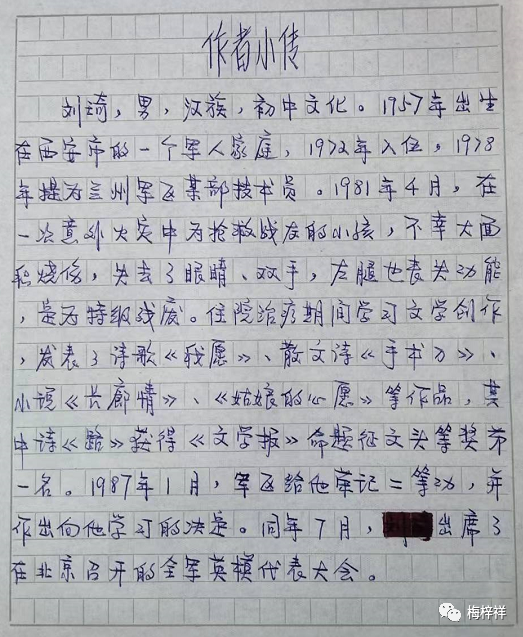 作者小传
刘琦，男，汉族，初中文化。1957年出生
在西安市的一个军人家庭，1972年入伍，1978
年提为兰州军区某部技术员。1981年4月，在
一次意外火灾中为抢救战友的小孩，不幸大面
积烧伤，失去了眼睛、双手，左腿也丧失功能
，是为特级残废。住院治疗期间学习文学创作
，发表了诗歌《我愿》、散文诗《手术刀》、
小说《长廊情》、《姑娘的心愿》等作品，其
中诗《路》获得《文学报》命题征文头等奖第
一名。1987年1月，军区给他荣记二等功，并
作出向他学习的决定。同年7月，出席了
在北京召开的全军英模代表大会。
梅梓祥